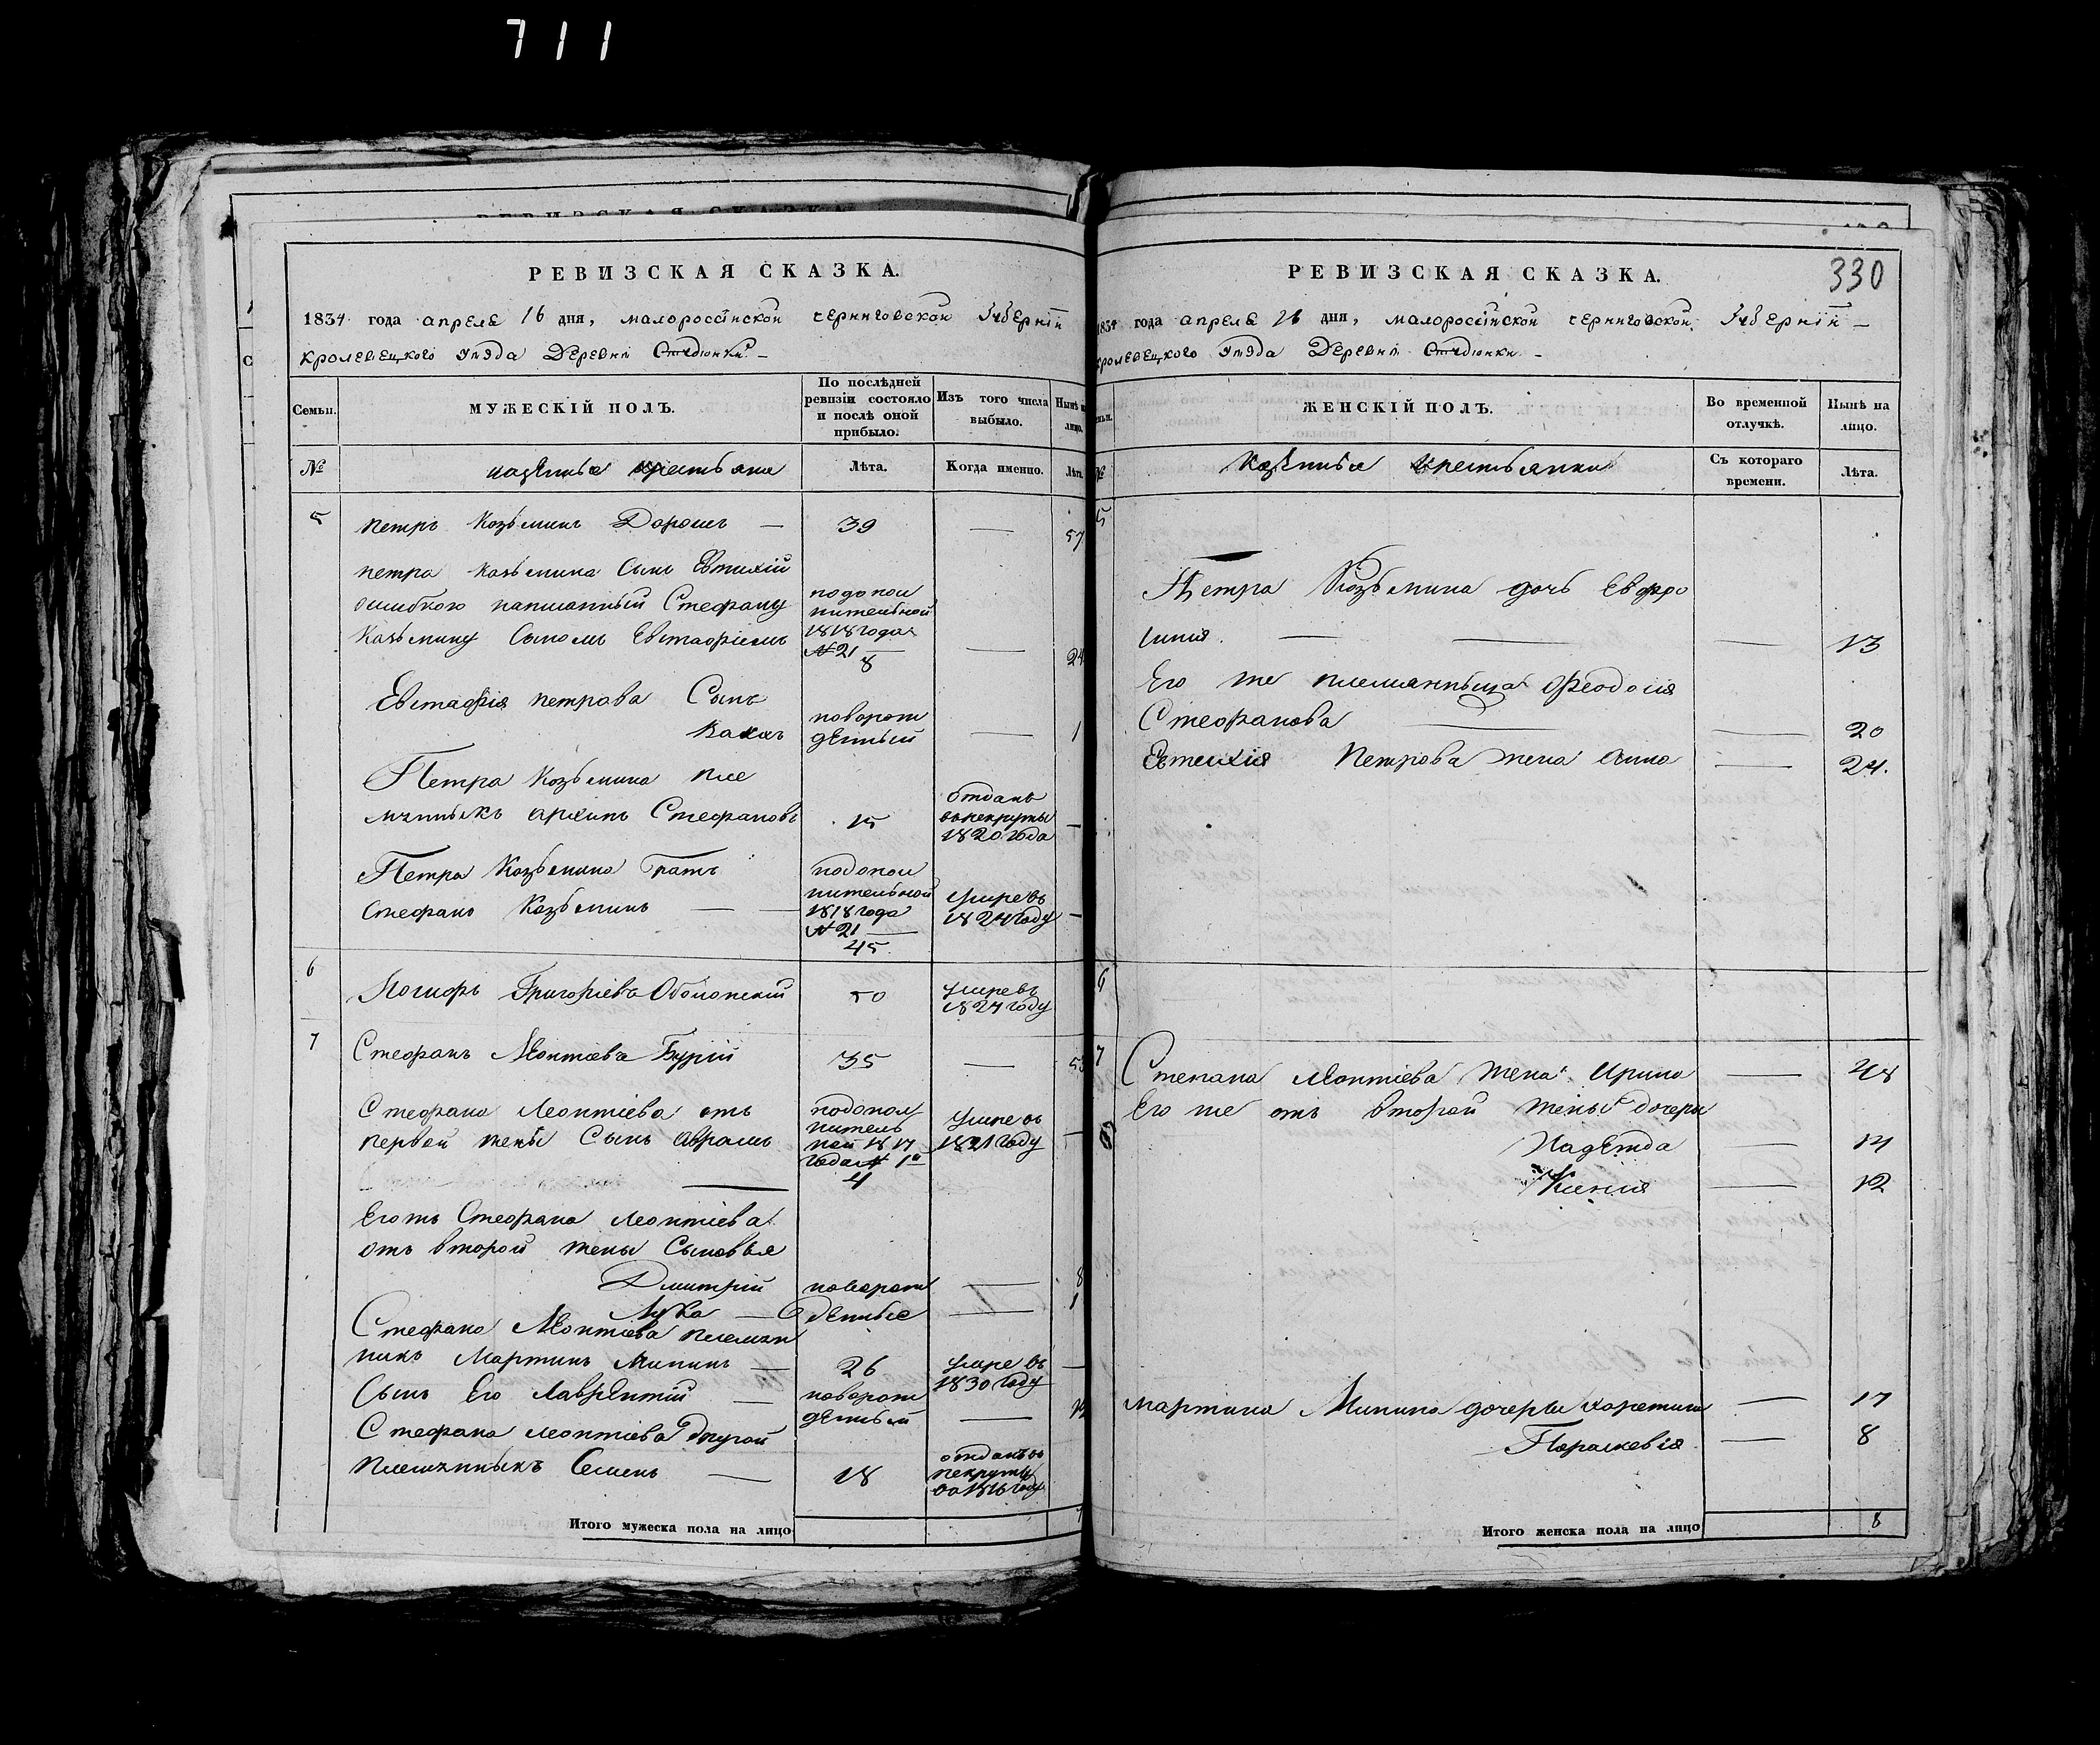 711
РЕВИЗСКАЯ СКАЗКА.
1834 года апреля 16 дня, малоросійской черниговской Губерніи
кролевецкого Уезда Деревни Студіонки
Семьи.
МУЖЕСКІЙ ПОЛЪ.
По послѣдней ревизіи состояло и послѣ оной прибыло.
Изъ того числа выбыло.
Нынѣ на лицо.
№
казенные крестьяне
Лѣта.
Когда именно.
Лѣта.
5 петръ Козьминъ Дорошъ — 39 — 57
петра казьмина Сынъ Евтихій
ошибкою написанный Стефану
Казьмину Сыномъ Евстафіемъ
по допол
нительной
1818 года
№ 21
8 — 24
Евстафія петрова Сынъ
новорож
денный — 1
Петра Козьмина пле
мянникъ архипъ Стефановъ 15
отданъ
въ рекруты
1820 года —
Петра Козьмина братъ
Стефанъ Козьминъ —
по допол
нительной
1818 года
№ 21
45
умре въ
1824 году —
6 Григоріевъ Оболонскій 50
умре въ
1824 году
7 Стефанъ Леонтіевъ Бурій 35 — 53
Стефана Леонтіева отъ
первой жены Сынъ Аврамъ
по допол
нитель
ной 1817
года № 1й
4
умре въ
1821 году —
Егожъ Стефана Леонтіева
отъ второй жены Сыновья
Дмитрій новорож — 8
Лука — денные — 1
Стефана Леонтіева племян
никъ Мартинъ Мининъ — 26
умре въ
1830 году —
Сынъ Его Лаврентій —
новорож
денный —
Стефана Леонтіева другой
племянникъ Семенъ — 18
отданъ въ
рекруты
въ 1816 году
Итого мужеска пола на лицо 7
РЕВИЗСКАЯ СКАЗКА.
330
1834 года апреля 16 дня, малоросійской черниговской Губерніи —
кролевецкого Уезда Деревни Студіонки —
ЖЕНСКІЙ ПОЛЪ.
Во временной отлучкѣ.
Нынѣ на лицо.
№
Казенные крестьянки
Съ котораго времени.
Лѣта.
5
Петра Козьмина дочь Евфро
синия — — — 13
Его же племянныца Феодосия
Стефанова — — 20
Евтихія Петрова жена Анна — 24.
6
7
Степана Леонтіева жена Ирина — 48
Его же отъ второй жены дочери
Надежда — 14
Ксенія — 12
Мартина Минина дочери — 17
Параскевія — 8
Итого женска пола на лицо 8